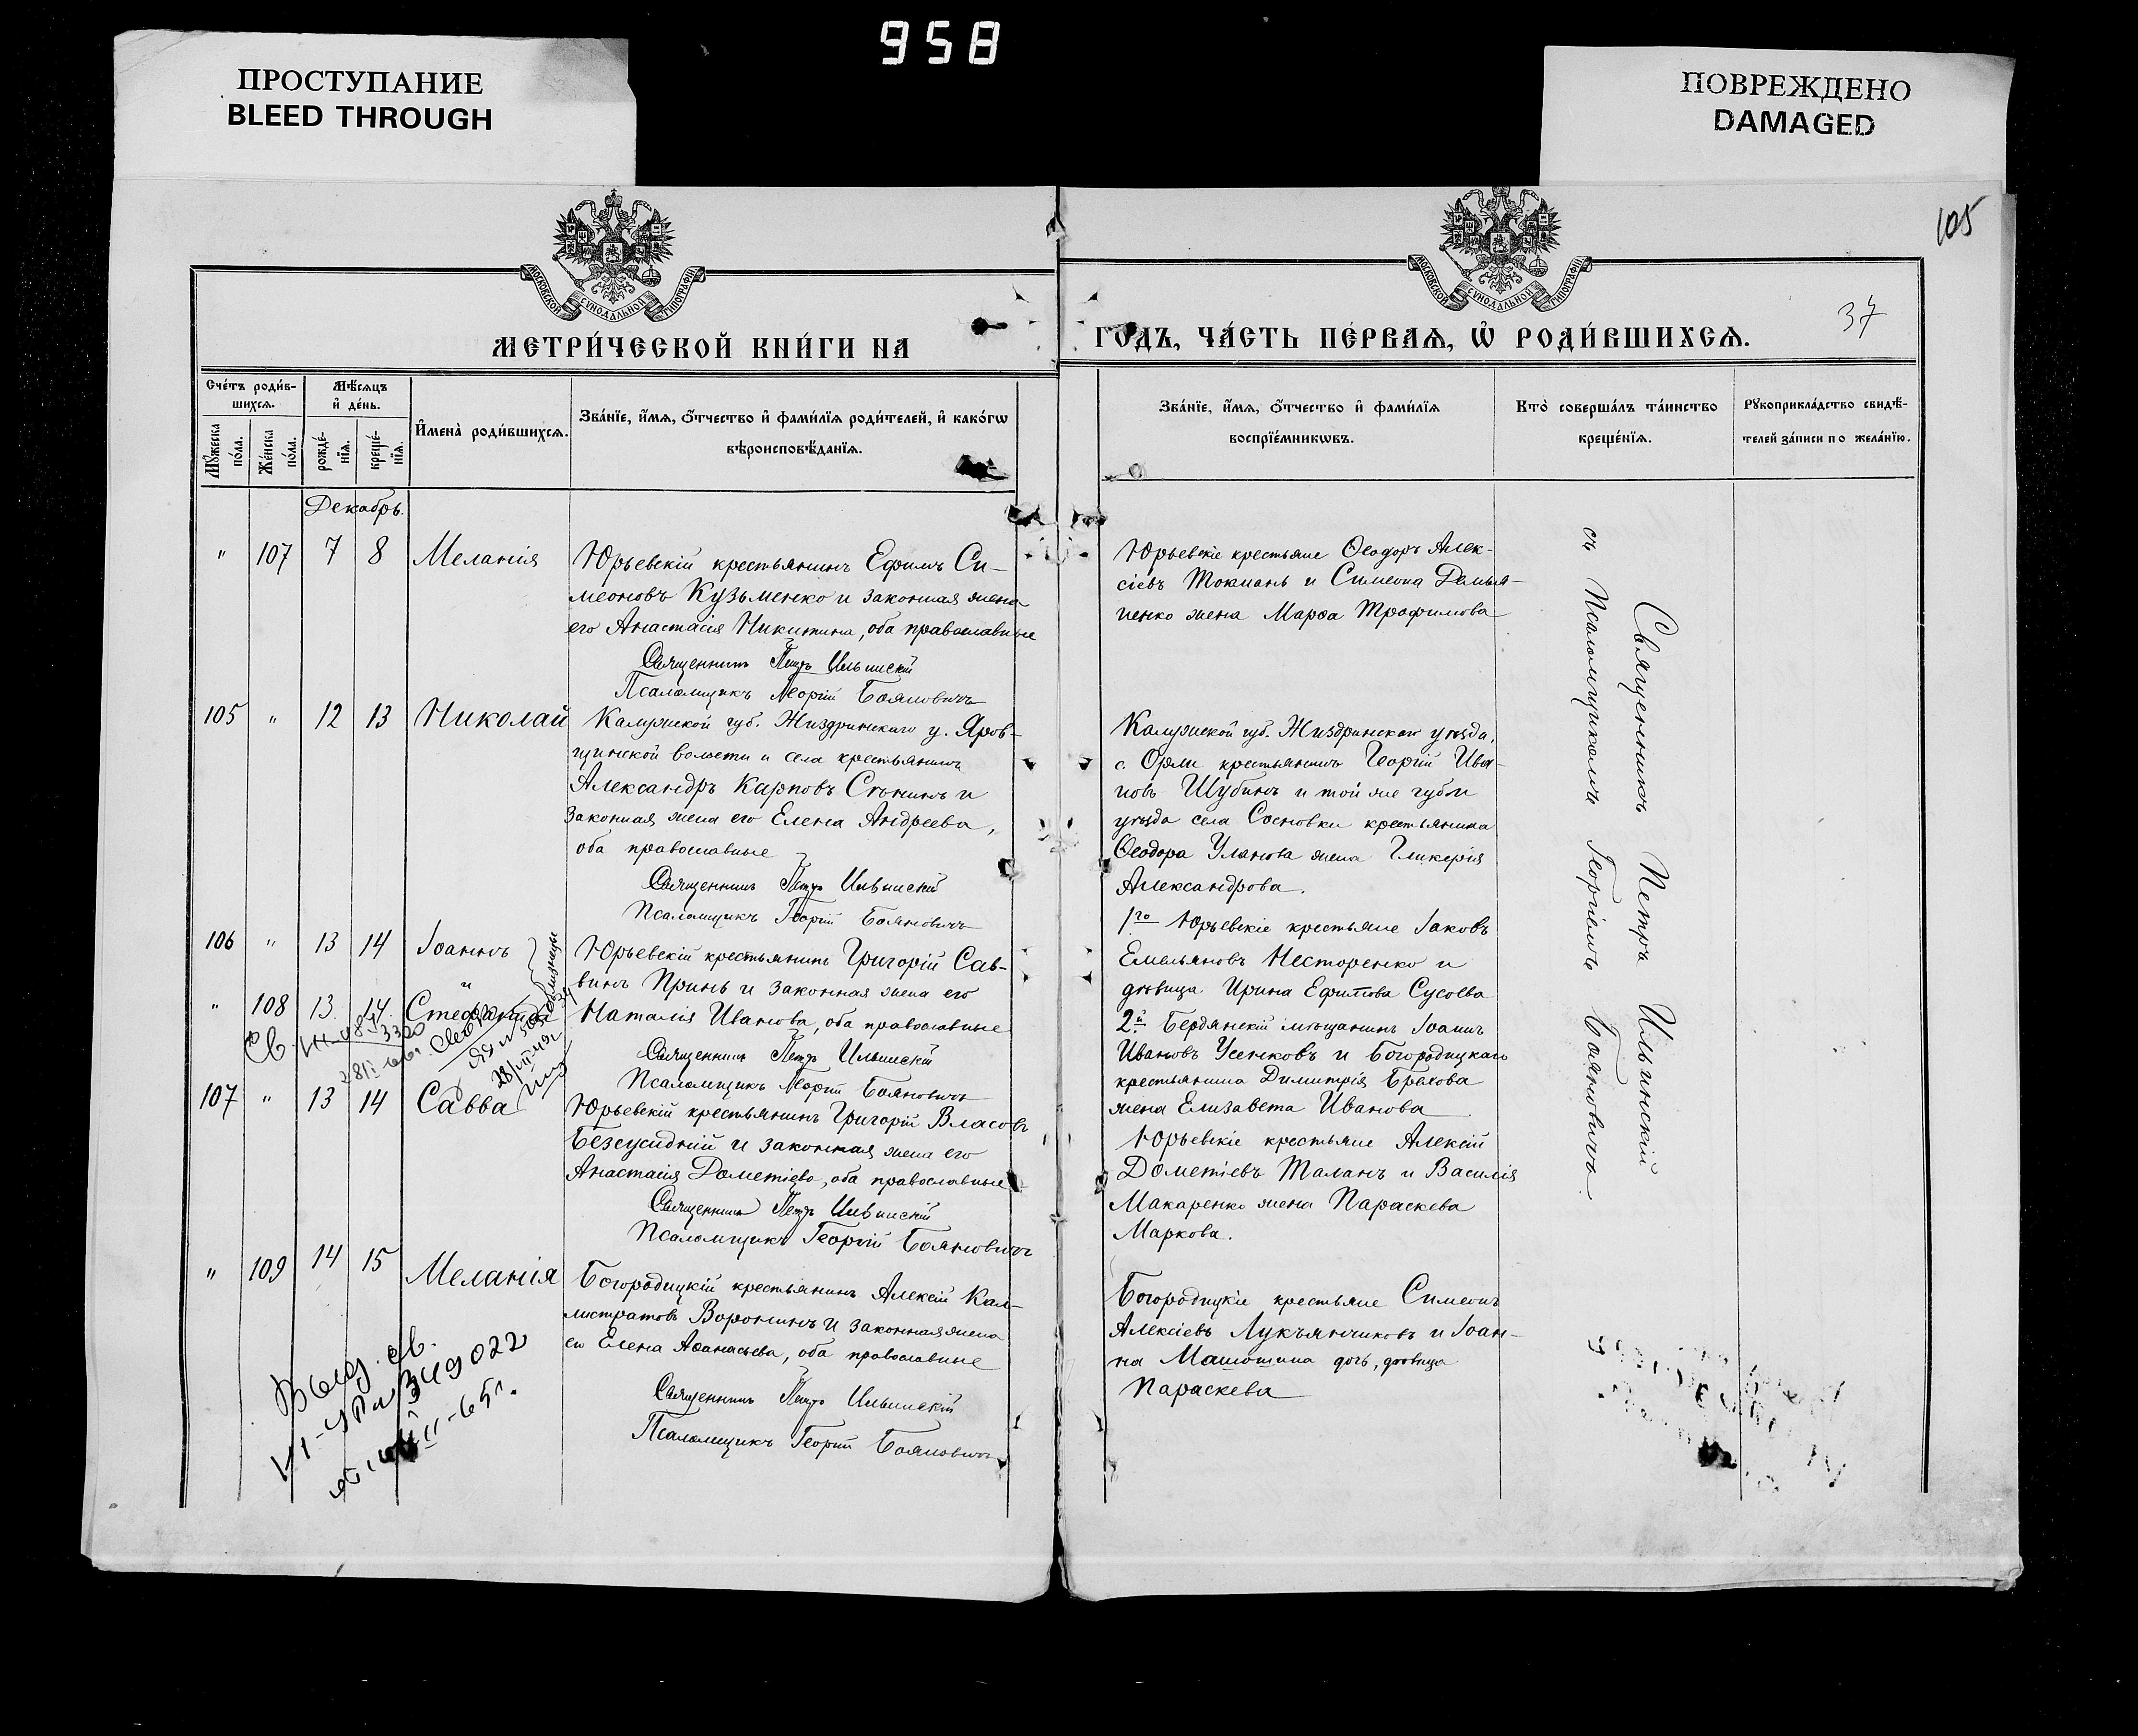 958
ПРОСТУПАНИЕ
BLEED THROUGH
ПОВРЕЖДЕНО
DAMAGED
105
37
МОСКОВСКОЙ СѴНОДАЛЬНОЙ ТИПОГРАФІИ
МОСКОВСКОЙ СѴНОДАЛЬНОЙ ТИПОГРАФІИ
МЕТРИ́ЧЕСКОЙ КНИ́ГИ НА
ГОДЪ, ЧА́СТЬ ПЕ́РВАѦ, Ѡ҆ РОДИ́ВШИХСѦ.
Сче́тъ роди́в-
шихсѧ.
Мꙋ́жеска по́ла.
Же́нска по́ла.
Мѣ́сѧцъ
и҆ де́нь.
рожде́-
нїѧ.
креще́-
нїѧ.
И҆мена̀ роди́вшихсѧ.
Зва́нїе, и҆́мѧ, ѻ҆́тчество и҆ фами́лїѧ роди́телей, и҆ како́гѡ
вѣроисповѣ́данїѧ.
Зва́нїе, и҆́мѧ, ѻ҆́тчество и҆ фами́лїѧ
воспрїе́мникѡвъ.
Кто̀ соверша́лъ та́инство
креще́нїѧ.
Рꙋкоприкла́дство свидѣ́-
телей за́писи по жела́нїю.
Декабрь.
" 107 7 8 Меланія
Юрьевскій крестьянинъ Ефимъ Си-
меоновъ Кузьменко и законная жена
его Анастасія Никитина, оба православные
Священникъ Петръ Ильинскій
Псаломщикъ Георгій Бояновичъ
Юрьевскіе крестьяне Ѳеодоръ Алек-
сіевъ Токмань и Симеона Демья-
ненко жена Марѳа Трофимова
105 " 12 13 Николай
Калужской губ. Жиздринскаго у. Яров-
щинской волости и села крестьянинъ
Александръ Карповъ Сѣнинъ и
законная жена его Елена Андреева,
оба православные
Священникъ Петръ Ильинскій
Псаломщикъ Георгій Бояновичъ
Калужской губ. Жиздринскаго уѣзда,
с. Орли крестьянинъ Георгій Ива-
новъ Шубинъ и той же губ. и
уѣзда села Сосновки крестьянина
Ѳеодора Уланова жена Гликерія
Александрова.
106 " 13 14 Іоаннъ
и
близнецы
" 108 13. 14. Стефанида
Юрьевскій крестьянинъ Григорій Сав-
винъ Принь и законная жена его
Наталія Иванова, оба православные
Священникъ Петръ Ильинскій
Псаломщикъ Георгій Бояновичъ
1го Юрьевскіе крестьяне Іаковъ
Емельяновъ Несторенко и
дѣвица Ирина Ефимова Сусоева
2й Бердянскій мѣщанинъ Іоаннъ
Ивановъ Усенковъ и Богородицкаго
крестьянина Димитрія Брехова
жена Елизавета Иванова
107 " 13 14 Савва
Юрьевскій крестьянинъ Григорій Власовъ
Безсусидній и законная жена его
Анастасія Дометіева, оба православные
Священникъ Петръ Ильинскій
Псаломщикъ Георгій Бояновичъ
Юрьевскіе крестьяне Алексій
Дометіевъ Таланъ и Василія
Макаренко жена Параскева
Маркова.
" 109 14 15 Меланія
Богородицкій крестьянинъ Алексій Кал-
листратовъ Воронинъ и законная жена
его Елена Аѳанасьева, оба православные
Священникъ Петръ Ильинскій
Псаломщикъ Георгій Бояновичъ
Богородицкіе крестьяне Симеонъ
Алексіевъ Лукъянчиковъ и Іоан-
на Машошина дочь, дѣвица
Параскева
Священникъ Петръ Ильинскій
съ Псаломщикомъ Георгіемъ Бояновичъ.
Выд. св.